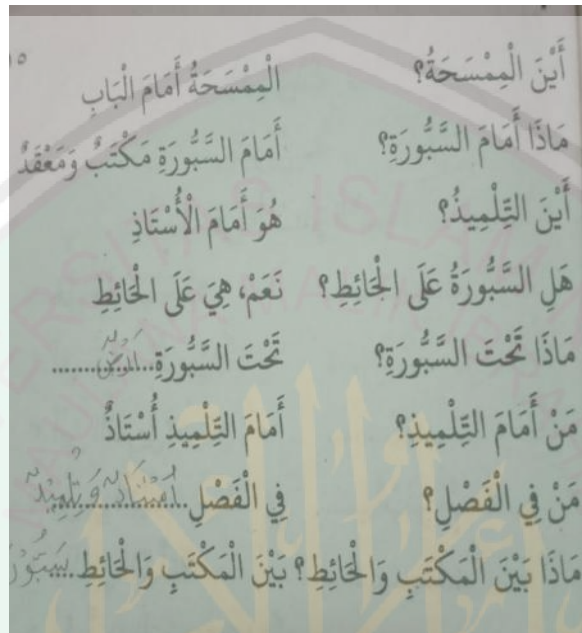 ١٥
أَيْنَ الْمِمْسَحَةُ؟ الْمِمْسَحَةُ أَمَامَ الْبَابِ
مَاذَا أَمَامَ السَّبُّورَةِ؟ أَمَامَ السَّبُّورَةِ مَكْتَبٌ وَمَعْقَدٌ
أَيْنَ التِّلْمِيذُ؟ هُوَ أَمَامَ الْأُسْتَاذِ
هَلِ السَّبُّورَةُ عَلَى الْحَائِطِ؟ نَعَمْ، هِيَ عَلَى الْحَائِطِ
مَاذَا تَحْتَ السَّبُّورَةِ؟ تَحْتَ السَّبُّورَةِ...............
مَنْ أَمَامَ التِّلْمِيذِ؟ أَمَامَ التِّلْمِيذِ أُسْتَاذٌ
مَنْ فِي الْفَصْلِ؟ فِي الْفَصْلِ... اُسْتَاذٌ وَ تِلْمِيْذٌ
مَاذَا بَيْنَ الْمَكْتَبِ وَالْحَائِطِ؟ بَيْنَ الْمَكْتَبِ وَالْحَائِطِ....